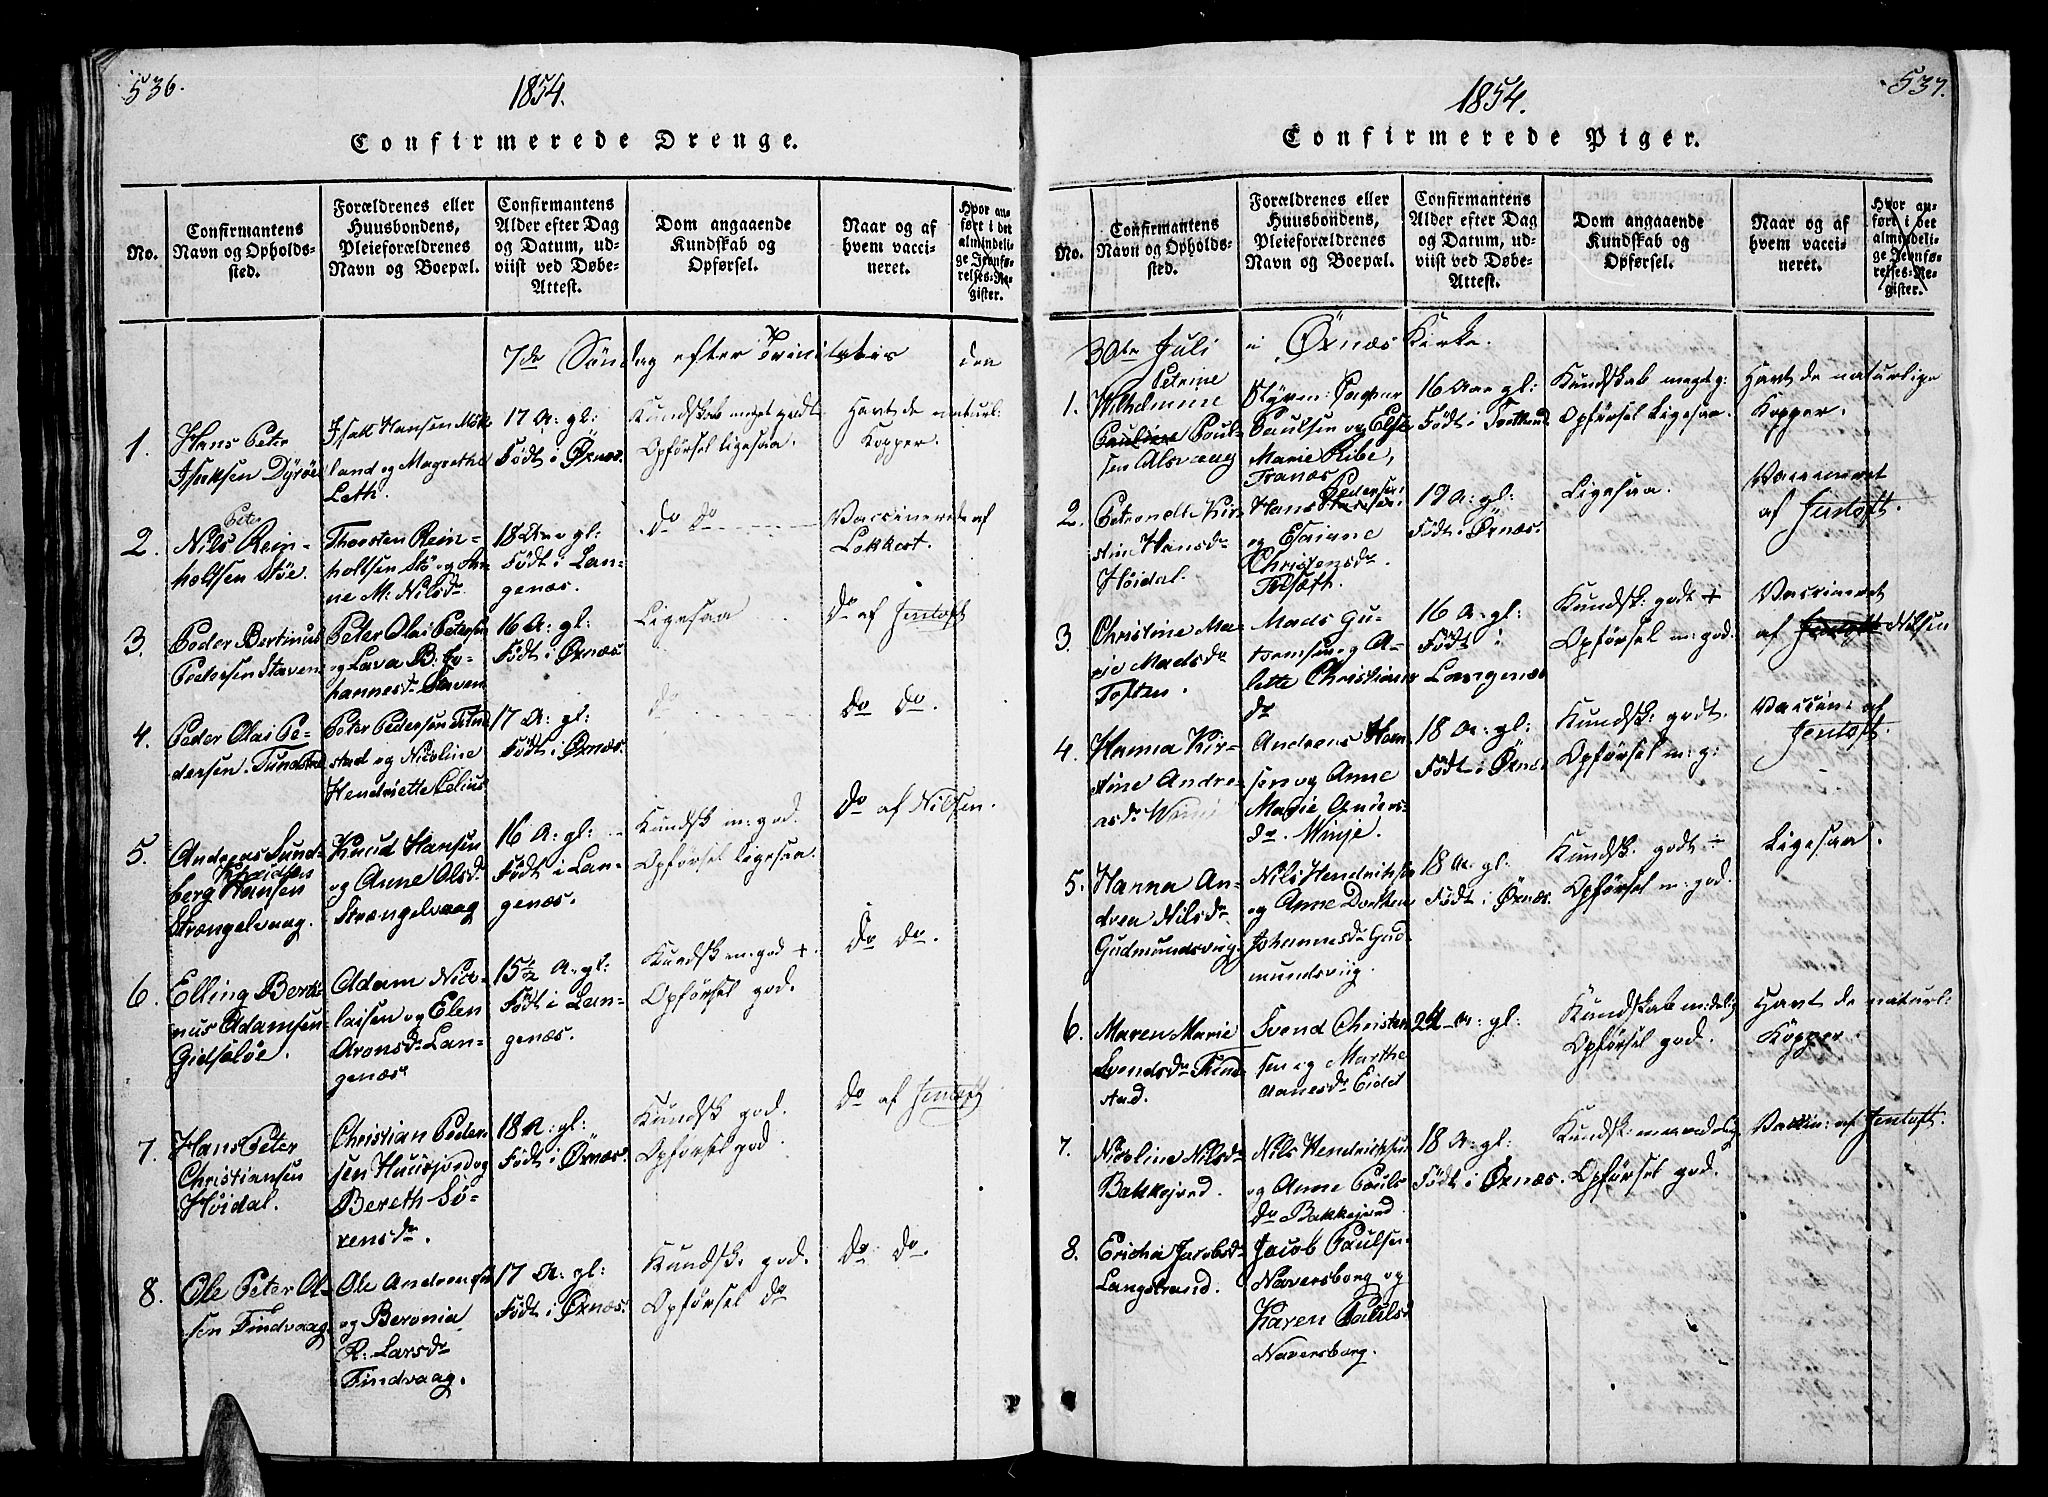 536.
1854.
Confirmerede Drenge.
No.
Confirmantens
Navn og Opholds-
sted.
Forældrenes eller
Huusbondens,
Pleieforældrenes
Navn og Boepæl.
Confirmantens
Alder efter Dag
og Datum, ud-
viist ved Døbe-
Attest.
Dom angaaende
Kundskab og
Opførsel.
Naar og af
hvem vacci-
neret.
Hvor an-
ført i det
almindeli-
ge Jevnfø-
relses-Re-
gister.
7de Söndag efter Trinitatis den
1.
Hans Peter
Isaksen Dyröe
Isak Hansen
land og Magrethe
Leth.
17 A: gl:
Födt i Ørnæs.
Kundskab meget godt
Opførsel ligesaa.
Havt de naturl:
Kopper.
2.
Peter
Nils Rein-
holtsen Støe.
Thorsten Rein-
holtsen Stö og An-
ne M: Nilsdr
18 Aar gl:
Födt i Lan-
genæs.
do do
Vaccinerede af
Lokkert.
3.
Peder Bertinus
Pedersen Staven
Peter Olai Petersen
og Lava B. Jo-
hannesdr Staven
16 A: gl:
Födt i Ørnæs
Ligesaa
do af Jentoft
4.
Peder Olai Pe-
dersen. Tunstad
Peter Pedersen Tund
stad og Nicoline
Hendriette Celius
17 A: gl:
Födt i Ørnæs.
do
do do.
5.
Andreas Sund-
Knudsen
berg Hansen
Strængelvaag.
Knud Hansen
og Anne Olsd
Strængelvaag
16 A: gl:
Födt i Lan-
genæs.
Kundsk m: god.
Opførsel ligesaa.
do af Nilsen.
6.
Elling Berti-
nus Adamsen
Gidsløe.
Adam Nico-
laisen og Elen
Aronsdr Lan-
genæs
15½ A: gl:
Födt i Lan-
genæs.
Kundsk m: god +
Opførsel god.
do do.
7.
Hans Peter
Christiansen
Höidal.
Christian Peder-
sen Huusjord og
Bereth Sö-
rensdr.
18 A: gl:
Födt i Ørnæs.
Kundsk god.
Opførsel god
do af Jentoft
8.
Ole Peter Ol-
sen Findvaag.
Ole Andreasen
og Beronia
R: Larsdr
Findvaag.
17 A: gl:
Födt i Ørnæs.
Kundsk: god.
Opførsel do
do do.
537.
1854.
Confirmerede Piger.
No.
Confirmantens
Navn og Opholds-
sted.
Forældrenes eller
Huusbondens,
Pleieforældrenes
Navn og Boepæl.
Confirmantens
Alder efter Dag
og Datum, ud-
viist ved Døbe-
Attest.
Dom angaaende
Kundskab og
Opførsel.
Naar og af
hvem vacci-
neret.
Hvor an-
ført i det
almindeli-
ge Jevnfø-
relses-Re-
gister.
30te Juli i Ørnæs Kirke.
1.
Petrine
Wilhelmine
Pauline Poul-
sen Alsvaag
Styrm: Jasper
Paulsen og Else
Marie Ribe,
Tranæs
16 Aar gl:
Födt i
Kundskab meget g:
Opførsel Ligesaa.
Havt de naturlige
Kopper.
2.
Petronelle Kir-
stine Hansdr
Höidal.
Hans Pedersen
og Esaiane
Christensdr
19 A: gl:
Födt i Ørnæs.
Ligesaa.
Vaccineret
af Jentoft.
3.
Christine Ma-
rie Madsdr
Toften.
Mads Gu-
tormsen og A-
lette Christians
dr
16 A: gl:
Födt i
Langenæs
Kundsk: godt +
Opførsel m: god.
Vaccineret
af Jentoft Nilsen
4.
Hanna Kir-
stine Andre-
asdr
Andreas Han
sen og Anne
Marie Anders-
dr. Winje.
18 A: gl:
Födt i Ørnæs
Kundsk: godt.
Opførsel m: g:
Vaccin: af
Jentoft.
5.
Hanna An-
drea Nilsdr
Gudmundsviig.
Nils Hendriksen
og Anne Dorthea
Johannesdr Gud-
mundsviig.
18 A: gl:
Födt i Ørnæs.
Kundsk: godt ÷
Opførsel m: god.
Ligesaa.
6.
Maren Marie
Svendsdr Tund
stad.
Svend Christen
sen og Marthe
Aanesdr Eidet
24 A: gl:
Kundskab m:delig
Opførsel god.
Havt de naturl:
Kopper
7.
Nicoline Nilsdr
Bakkejord.
Nils Hendriksen
og Anne Pauls
dr Bakkejord
18 A: gl:
Födt i Ørnæs.
Kundsk:
Opførsel god.
Vaccin: af Jentoft.
8.
Ericha Jacobsdr
Langstrand.
Jacob Paulsen
Naversborg og
Karen Paulsd
Naversborg.